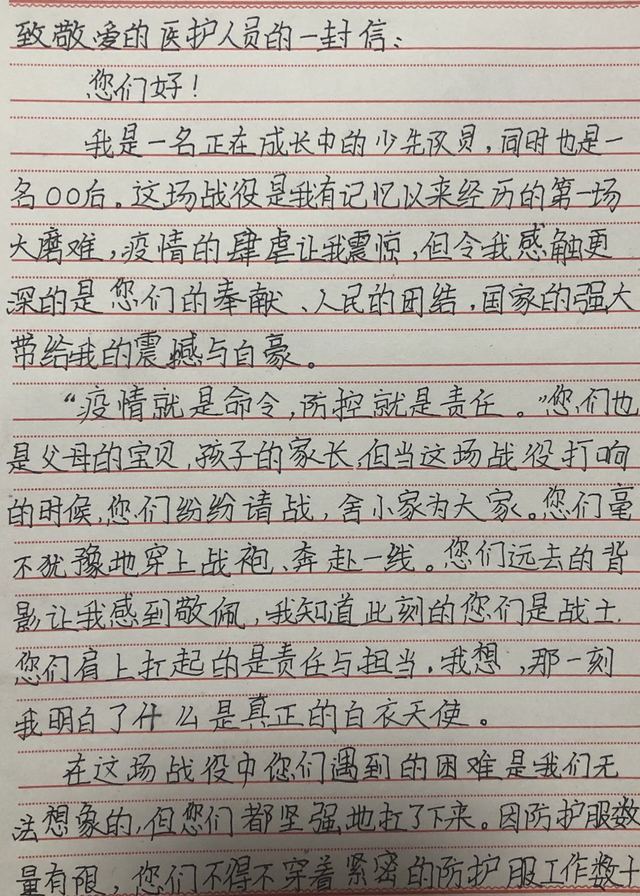 致敬爱的医护人员的一封信：
您们好！
我是一名正在成长中的少先队员，同时也是一
名00后。这场战役是我有记忆以来经历的第一场
大磨难，疫情的肆虐让我震惊，但令我感触更
深的是您们的奉献、人民的团结，国家的强大
带给我的震撼与自豪。
“疫情就是命令，防控就是责任。”您们也
是父母的宝贝，孩子的家长，但当这场战役打响
的时候，您们纷纷请战，舍小家为大家。您们毫
不犹豫地穿上战袍、奔赴一线。您们远去的背
影让我感到敬佩，我知道此刻的您们是战士，
您们肩上扛起的是责任与担当。我想，那一刻
我明白了什么是真正的白衣天使。
在这场战役中您们遇到的困难是我们无
法想象的，但您们都坚强地扛了下来。因防护服数
量有限，您们不得不穿着紧密的防护服工作数十